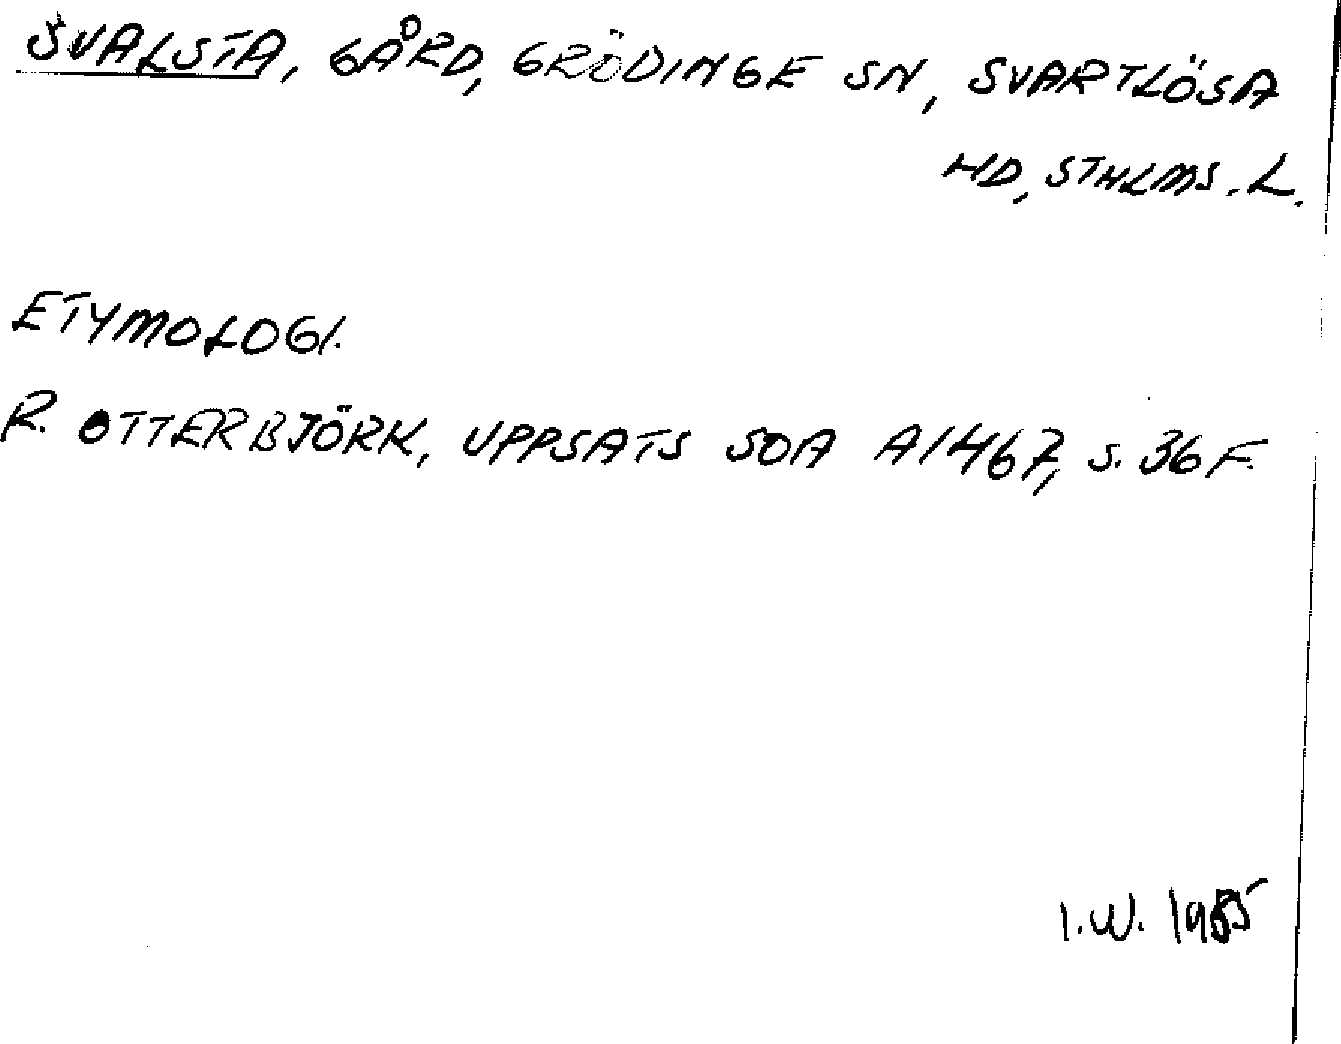 SVALSTA, GÅRD, GRÖDINGE SN, SVARTLÖSA
HD, STHLMS. L.
ETYMOLOGI.
R. OTTERBJÖRK, UPPSATS SOA A1467, S. 36 F.
I.W. 1985